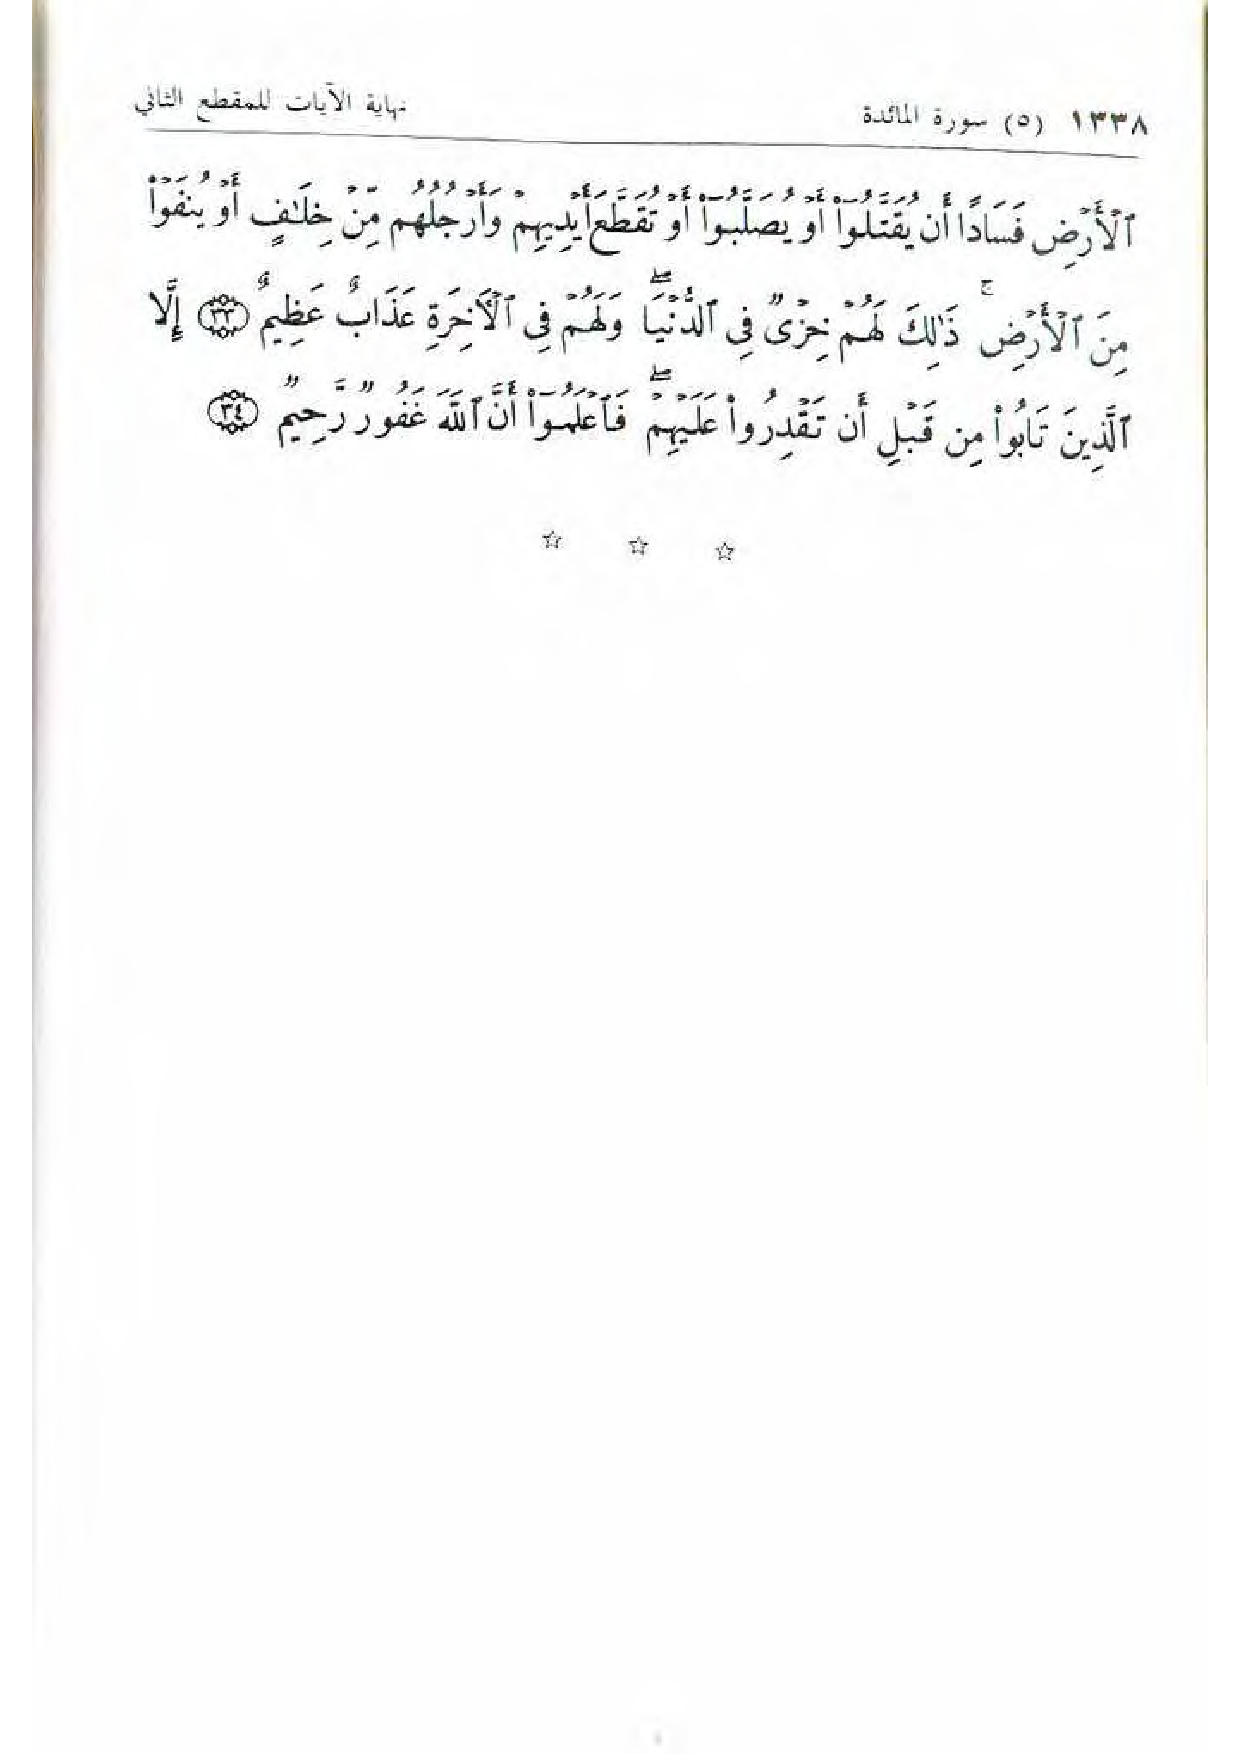 ١٣٣٨ (٥) سورة المائدة نهاية الآيات للمقطع الثاني
ٱلْأَرْضِ فَسَادًا أَن يُقَتَّلُوٓا۟ أَوْ يُصَلَّبُوٓا۟ أَوْ تُقَطَّعَ أَيْدِيهِمْ وَأَرْجُلُهُم مِّنْ خِلَـٰفٍ أَوْ يُنفَوْا۟
مِنَ ٱلْأَرْضِ ۚ ذَٰلِكَ لَهُمْ خِزْىٌ فِى ٱلدُّنْيَا ۖ وَلَهُمْ فِى ٱلْـَٔاخِرَةِ عَذَابٌ عَظِيمٌ ﴿٣٣﴾ إِلَّا
ٱلَّذِينَ تَابُوا۟ مِن قَبْلِ أَن تَقْدِرُوا۟ عَلَيْهِمْ ۖ فَٱعْلَمُوٓا۟ أَنَّ ٱللَّهَ غَفُورٌ رَّحِيمٌ ﴿٣٤﴾
☆ ☆ ☆